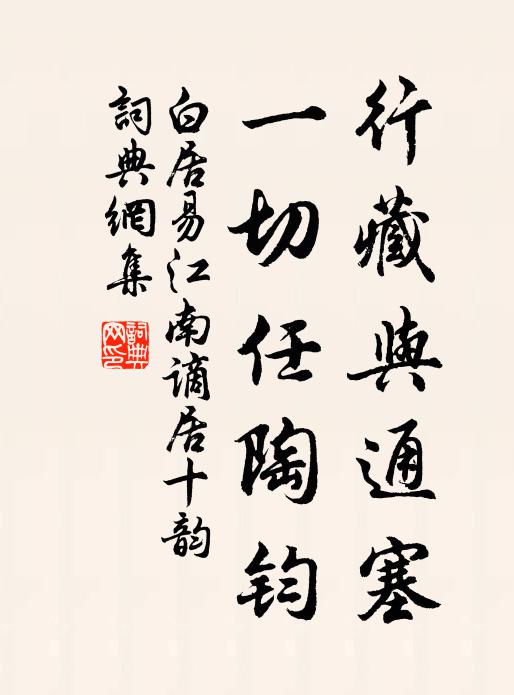 行藏與通塞
一切任陶钧
白居易江南谪居十韵
詞典網集
詞典
网印